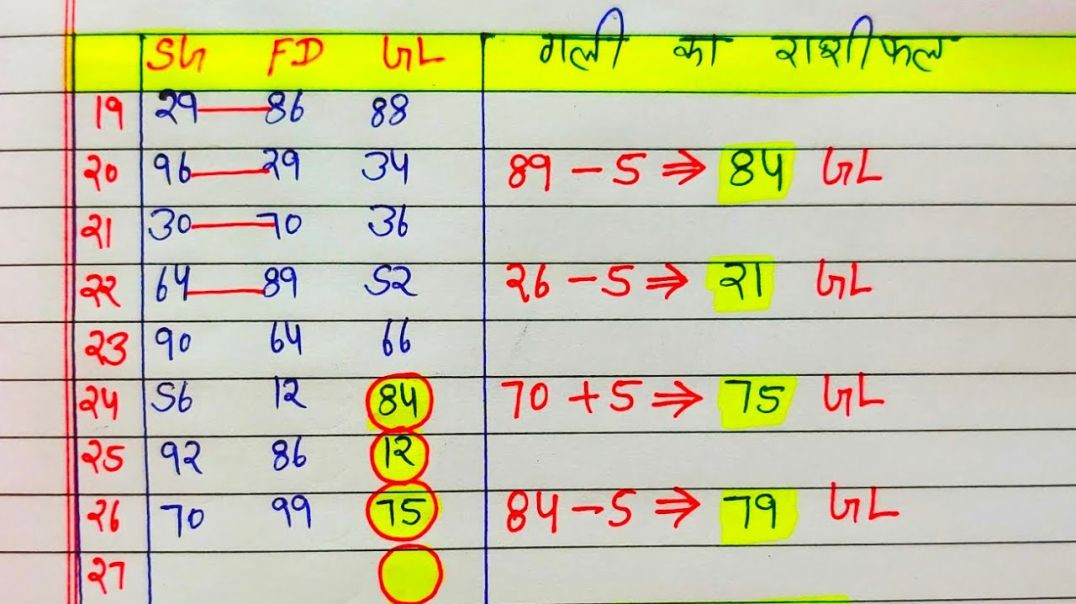 SG FD GL गली का राशीफल
19 29 — 86 88
20 96 — 29 34 89 - 5 ⇒ 84 GL
21 30 — 70 36
22 64 — 89 52 26 - 5 ⇒ 21 GL
23 90 64 66
24 56 12 84 70 + 5 ⇒ 75 GL
25 92 86 12
26 70 99 75 84 - 5 ⇒ 79 GL
27